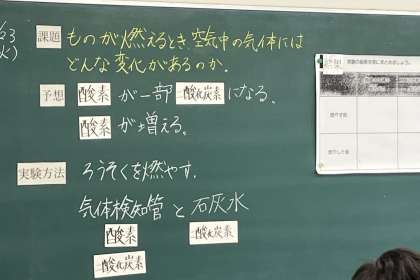 課題 ものが燃えるとき空気中の気体には
どんな変化があるのか.
予想 酸素 が一部 二酸化炭素 になる.
酸素 が増える.
実験方法 ろうそくを燃やす.
気体検知管 と 石灰水
酸素 二酸化炭素
二酸化炭素